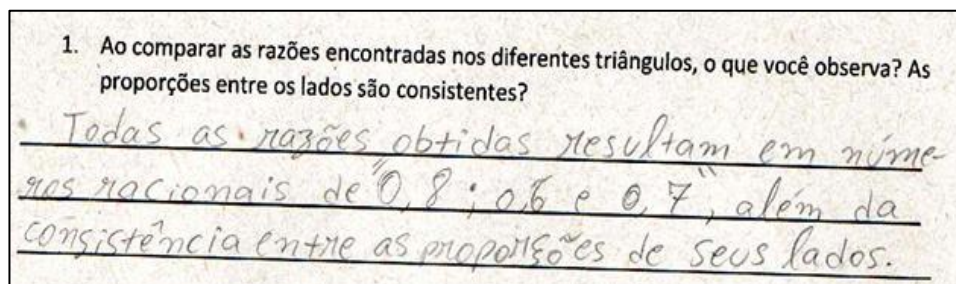 1. Ao comparar as razões encontradas nos diferentes triângulos, o que você observa? As
proporções entre os lados são consistentes?
Todas as razões obtidas resultam em núme-
ros racionais de "0,8; 0,6 e 0,7", além da
consistência entre as proporções de seus lados.